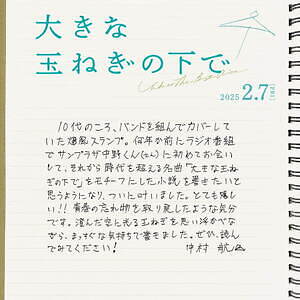 大きな
玉ねぎの下で
2025 2.7[FRI]
10代のころ、バンドを組んでカバーして
いた爆風スランプ。何年か前にラジオ番組
でサンプラザ中野くん(さん)に初めてお会い
して、それから時代を超える名曲「大きな玉
ねぎの下で」をモチーフにした小説を書きたいと
思うようになり、ついに叶いました。とても嬉し
い!!青春の忘れ物を取り戻したような気分
です。澄んだ空に光る玉ねぎを思い浮かべな
がら、まっすぐな気持ちで書きました。ぜひ、読ん
でみてください!
中村航